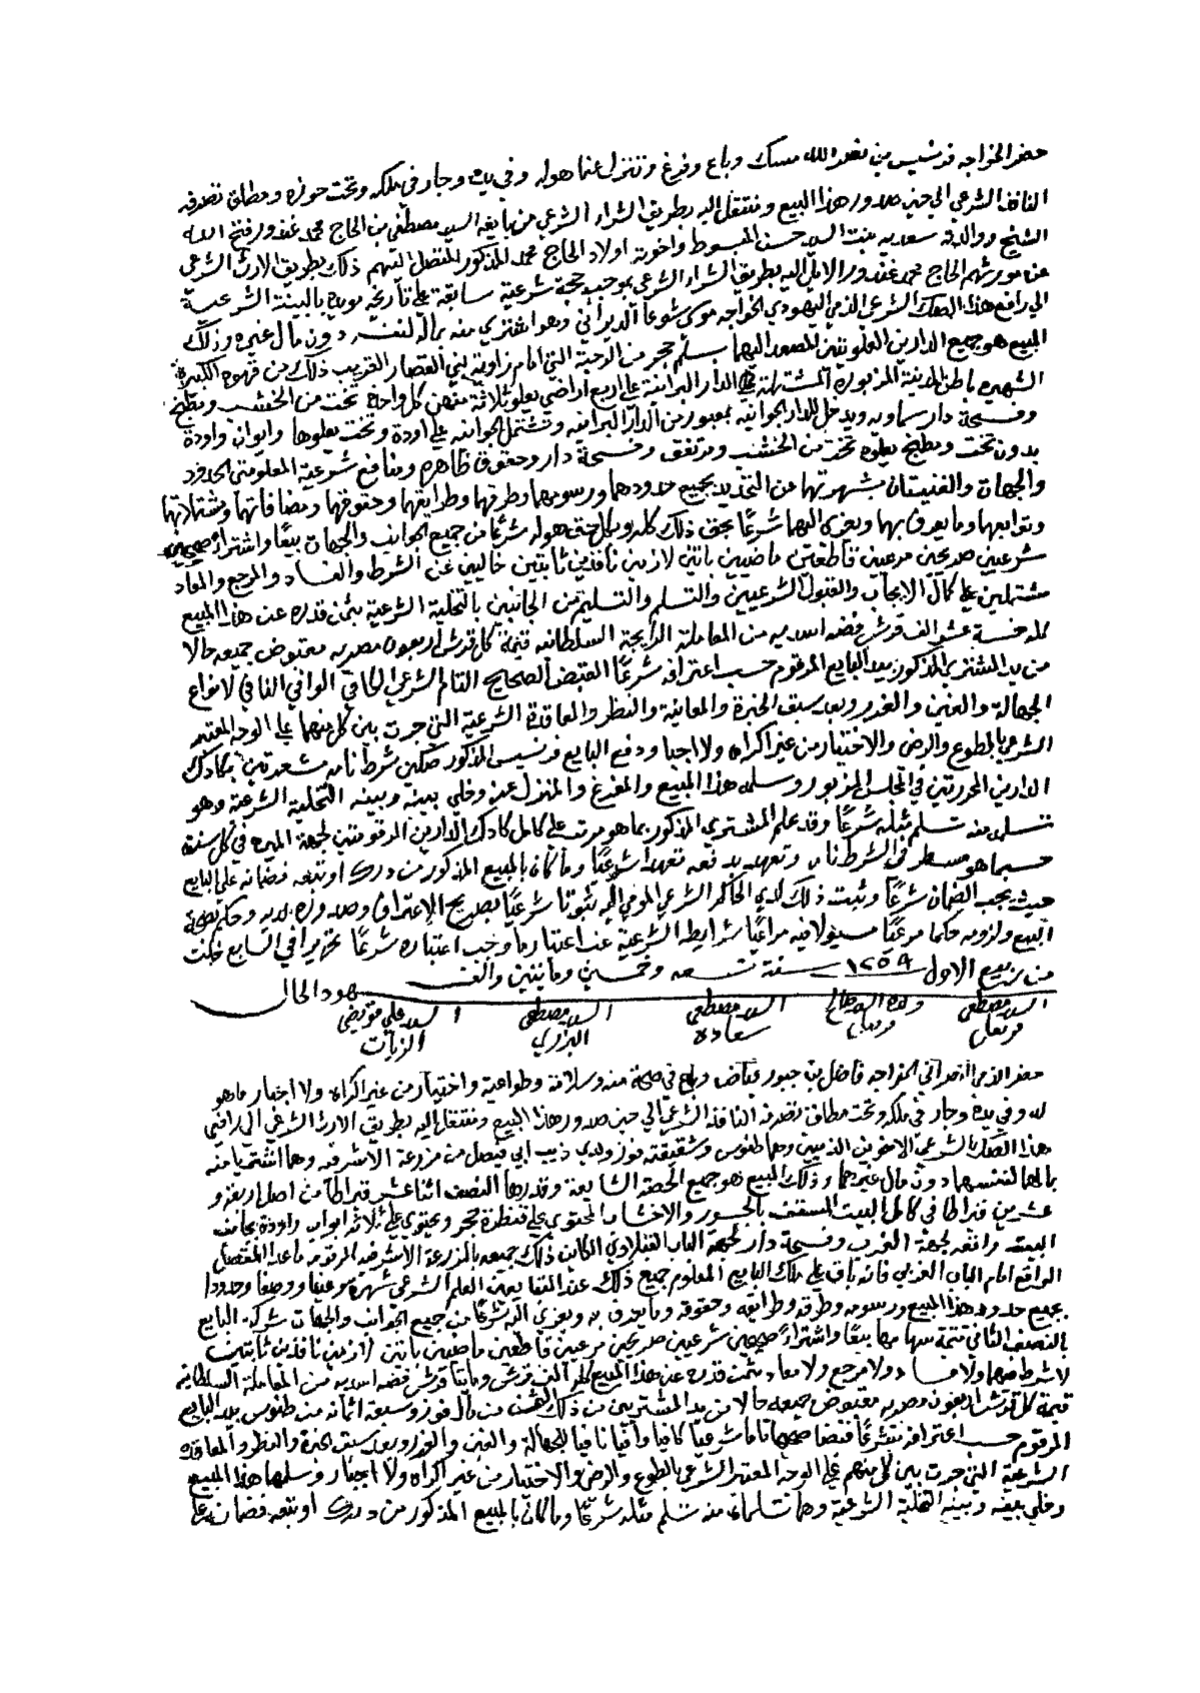 حضر الخواجه فرنسيس بن نصر الله مسك وباع وفرغ وتنزل عما هو له وفي يده وجار في ملكه وتحت حوزه ومطلق تصرفه
النافذ الشرعي الى حين صدور هذا البيع ومنتقل اليه بطريق الشراء الشرعي من بايعه السيد مصطفى بن الحاج محمد غندور فتح الله
الشيخ ووالدته سعديه بنت السيد حسن المبسوط واخوته اولاد الحاج محمد المذكور المنتقل اليهم ذلك بطريق الارث الشرعي
عن مورثهم الحاج محمد غندور الايل اليه بطريق الشراء الشرعي بموجب حجة شرعية سابقة على تاريخه مويدة بالبينة الشرعية
الى رافع هذا الصك الشرعي الذمي اليهودي الخواجه موسى شوعا الديراني وهو اشترى منه بماله لنفسه دون مال غيره وذلك
المبيع هو جميع الدارين العلويتين المصعد اليهما بسلم حجر من الرحبة التي امام زاوية بني القصار القريب ذلك من قهوة الكبيرة
الشهير باطن المدينة المزبورة المشتملة الدار البرانية على اربع اراضي يعلو ثلاثة منهن كل واحدة تخت من الخشب ومطبخ
وفسحة دار سماويه ويدخل للدار الجوانيه بمعبور من الدار البرانيه وتشتمل الجوانيه على اودة وتخت يعلوها وايوان واودة
بدون تخت ومطبخ يعلوه تخت من الخشب ومرتفق وفسحة دار وحقوق ظاهره ومنافع شرعية المعلومتي الحدود
والجهات والغنيتان بشهرتهما عن التحديد بجميع حدودهما ورسومهما وطرقهما وطرايقهما وحقوقهما ومضافاتهما ومشتملاتهما
وتوابعهما وما يعرف بهما ويعزى اليهما شرعا بحق ذلك كله وبكل حق هو له شرعا من جميع الجوانب والجهات بيعا واشتراء صحيحين
شرعيين صريحين مرعيين قاطعين ماضيين باتين لازمين نافذين ثابتين خاليين عن الشرط والفساد والمرجع والمعاد
مشتملين على كمال الايجاب والقبول الشرعيين والتسلم والتسليم من الجانبين بالتخلية الشرعية بثمن قدره عن هذا المبيع
كله خمسة عشر الف قرش فضه اسديه من المعاملة الرايجة السلطانيه قيمة كل قرش اربعون مصريه مقبوض جميعه حالا
من يد المشتري المذكور بيد البايع المرقوم حسب اعترافه شرعا القبض الصحيح التام الشرعي الكافي الوافي النافي لانواع
الجهالة والغبن والغرر وبعد سبق الخبرة والمعاينة والنظر والمعاقدة الشرعية التي جرت بين كل منهما على الوجه المعتبر
الشرعي بالطوع والرضى والاختيار من غير اكراه ولا اجبار ودفع البايع فرنسيس المذكور صكين شرط نامه مشعرتين بكادك
الدارين المحررتين في المجلس المزبور وسلمه هذا المبيع والمفرغ والمنزل عنه وخلي بينه وبينه التخلية الشرعية وهو
تسلمه منه تسلم مثله شرعا وقد علم المشتري المذكور بما هو مرتب على كامل كادك الدارين المرقومتين لجهة الميره في كل سنة
حسبما هو مسطر في الشرط نامه وتعهد بدفعه تعهدا شرعيا وما كان بالمبيع المذكور من درك او تبعه فضمانه على البايع
حيث يجب الضمان شرعا وثبت ذلك لدي الحاكم الشرعي المومى اليه ثبوتا شرعيا بصريح الاعتراف وصدوره لديه وحكم بصحة
البيع ولزومه حكما مرعيا مسئولا فيه مراعيا شرايطه الشرعية عند اعتبار ما وجب اعتباره شرعا تحريرا في السابع خلت
من ربيع الاول ١٢٥٩ سنة تسعه وخمسين ومايتين والف
شهود الحال
السيد مصطفى ولده السيد صالح السيد مصطفى السيد مصطفى السيد علي مرتضى
سعادة البزري الزيات
حضر الذمي النصراني الخواجه فاضل بن جبور فياض وباع في صحة منه وسلامة وطواعية واختيار من غير اكراه ولا اجبار ما هو
له وفي يده وجار في ملكه وتحت مطلق تصرفه النافذ الشرعي الى حين صدور هذا المبيع ومنتقل اليه بطريق الارث الشرعي الى رافعي
هذا الصك الشرعي الاخوين الذميين وهما طنوس وشقيقته فوز ولدي ذيب ابي فيصل من مزرعة الاشرفيه وهما اشتريا منه
بمالهما لنفسهما دون مال غيرهما وذلك المبيع هو جميع الحصة الشايعة وقدرها النصف اثنا عشر قيراطا من اصل اربعة و
عشرين قيراطا في كامل البيت المسقف بالجسور والاخشاب المحتوي على قنطرة حجر ويحتوي على ثلاثة ابواب واودة بجانب
البيت راقعه لجهة الغرب وفسحة دار لجهة الباب القبلاوي الكاين ذلك جميعه بالمزرعة الاشرفيه المرقوم ما عدا المفصل
الواقع امام الباب الغربي فانه باق على ملك البايع المعلوم جميع ذلك عند المتبايعين العلم الشرعي شهرة موقعا ووصفا وحدودا
بجميع حدود هذا المبيع ورسومه وطرقه وطرايقه وحقوقه وما يعرف به ويعزى اليه شرعا من جميع الجوانب والجهات شركة البايع
بالنصف الثاني تتمة سهامها بيعا واشتراء صحيحين شرعيين صريحين مرعيين قاطعين ماضيين باتين لازمين نافذين ثابتين
لا شرط فيهما ولا فساد ولا مرجع ولا معاد بثمن قدره عن هذا المبيع كله الف قرش ومايتا قرش فضه اسديه من المعاملة السلطانيه
قيمة كل قرش اربعون مصريه مقبوض جميعه حالا من يد المشتريين من ذلك الثمن من مال فوز وسبعة اثمانه من طنوس بيد البايع
المرقوم حسب اعترافه شرعا قبضا صحيحا تاما شرعيا كافيا وافيا نافيا للجهالة والغبن والغرر وبعد سبق الخبرة والنظر والمعاقدة
الشرعية التي جرت بين كل منهم على الوجه المعتبر الشرعي بالطوع والرضى والاختيار من غير اكراه ولا اجبار وسلمها هذا المبيع
وخلي بينه وبينه التخلية الشرعية وهما تسلماه منه تسلم مثله شرعا وما كان بالمبيع المذكور من درك او تبعه فضمانه على